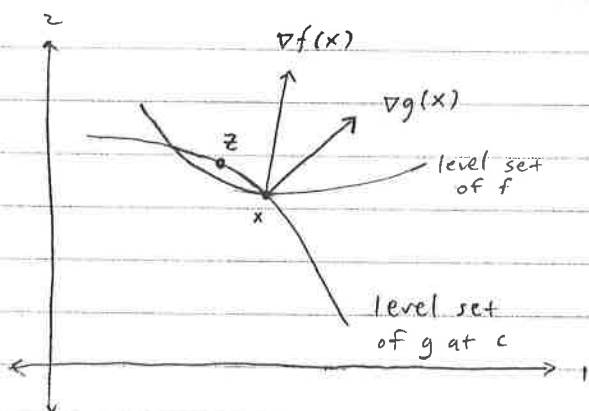 2
∇f(x)
∇g(x)
z
level set
of f
x
level set
of g at c
1